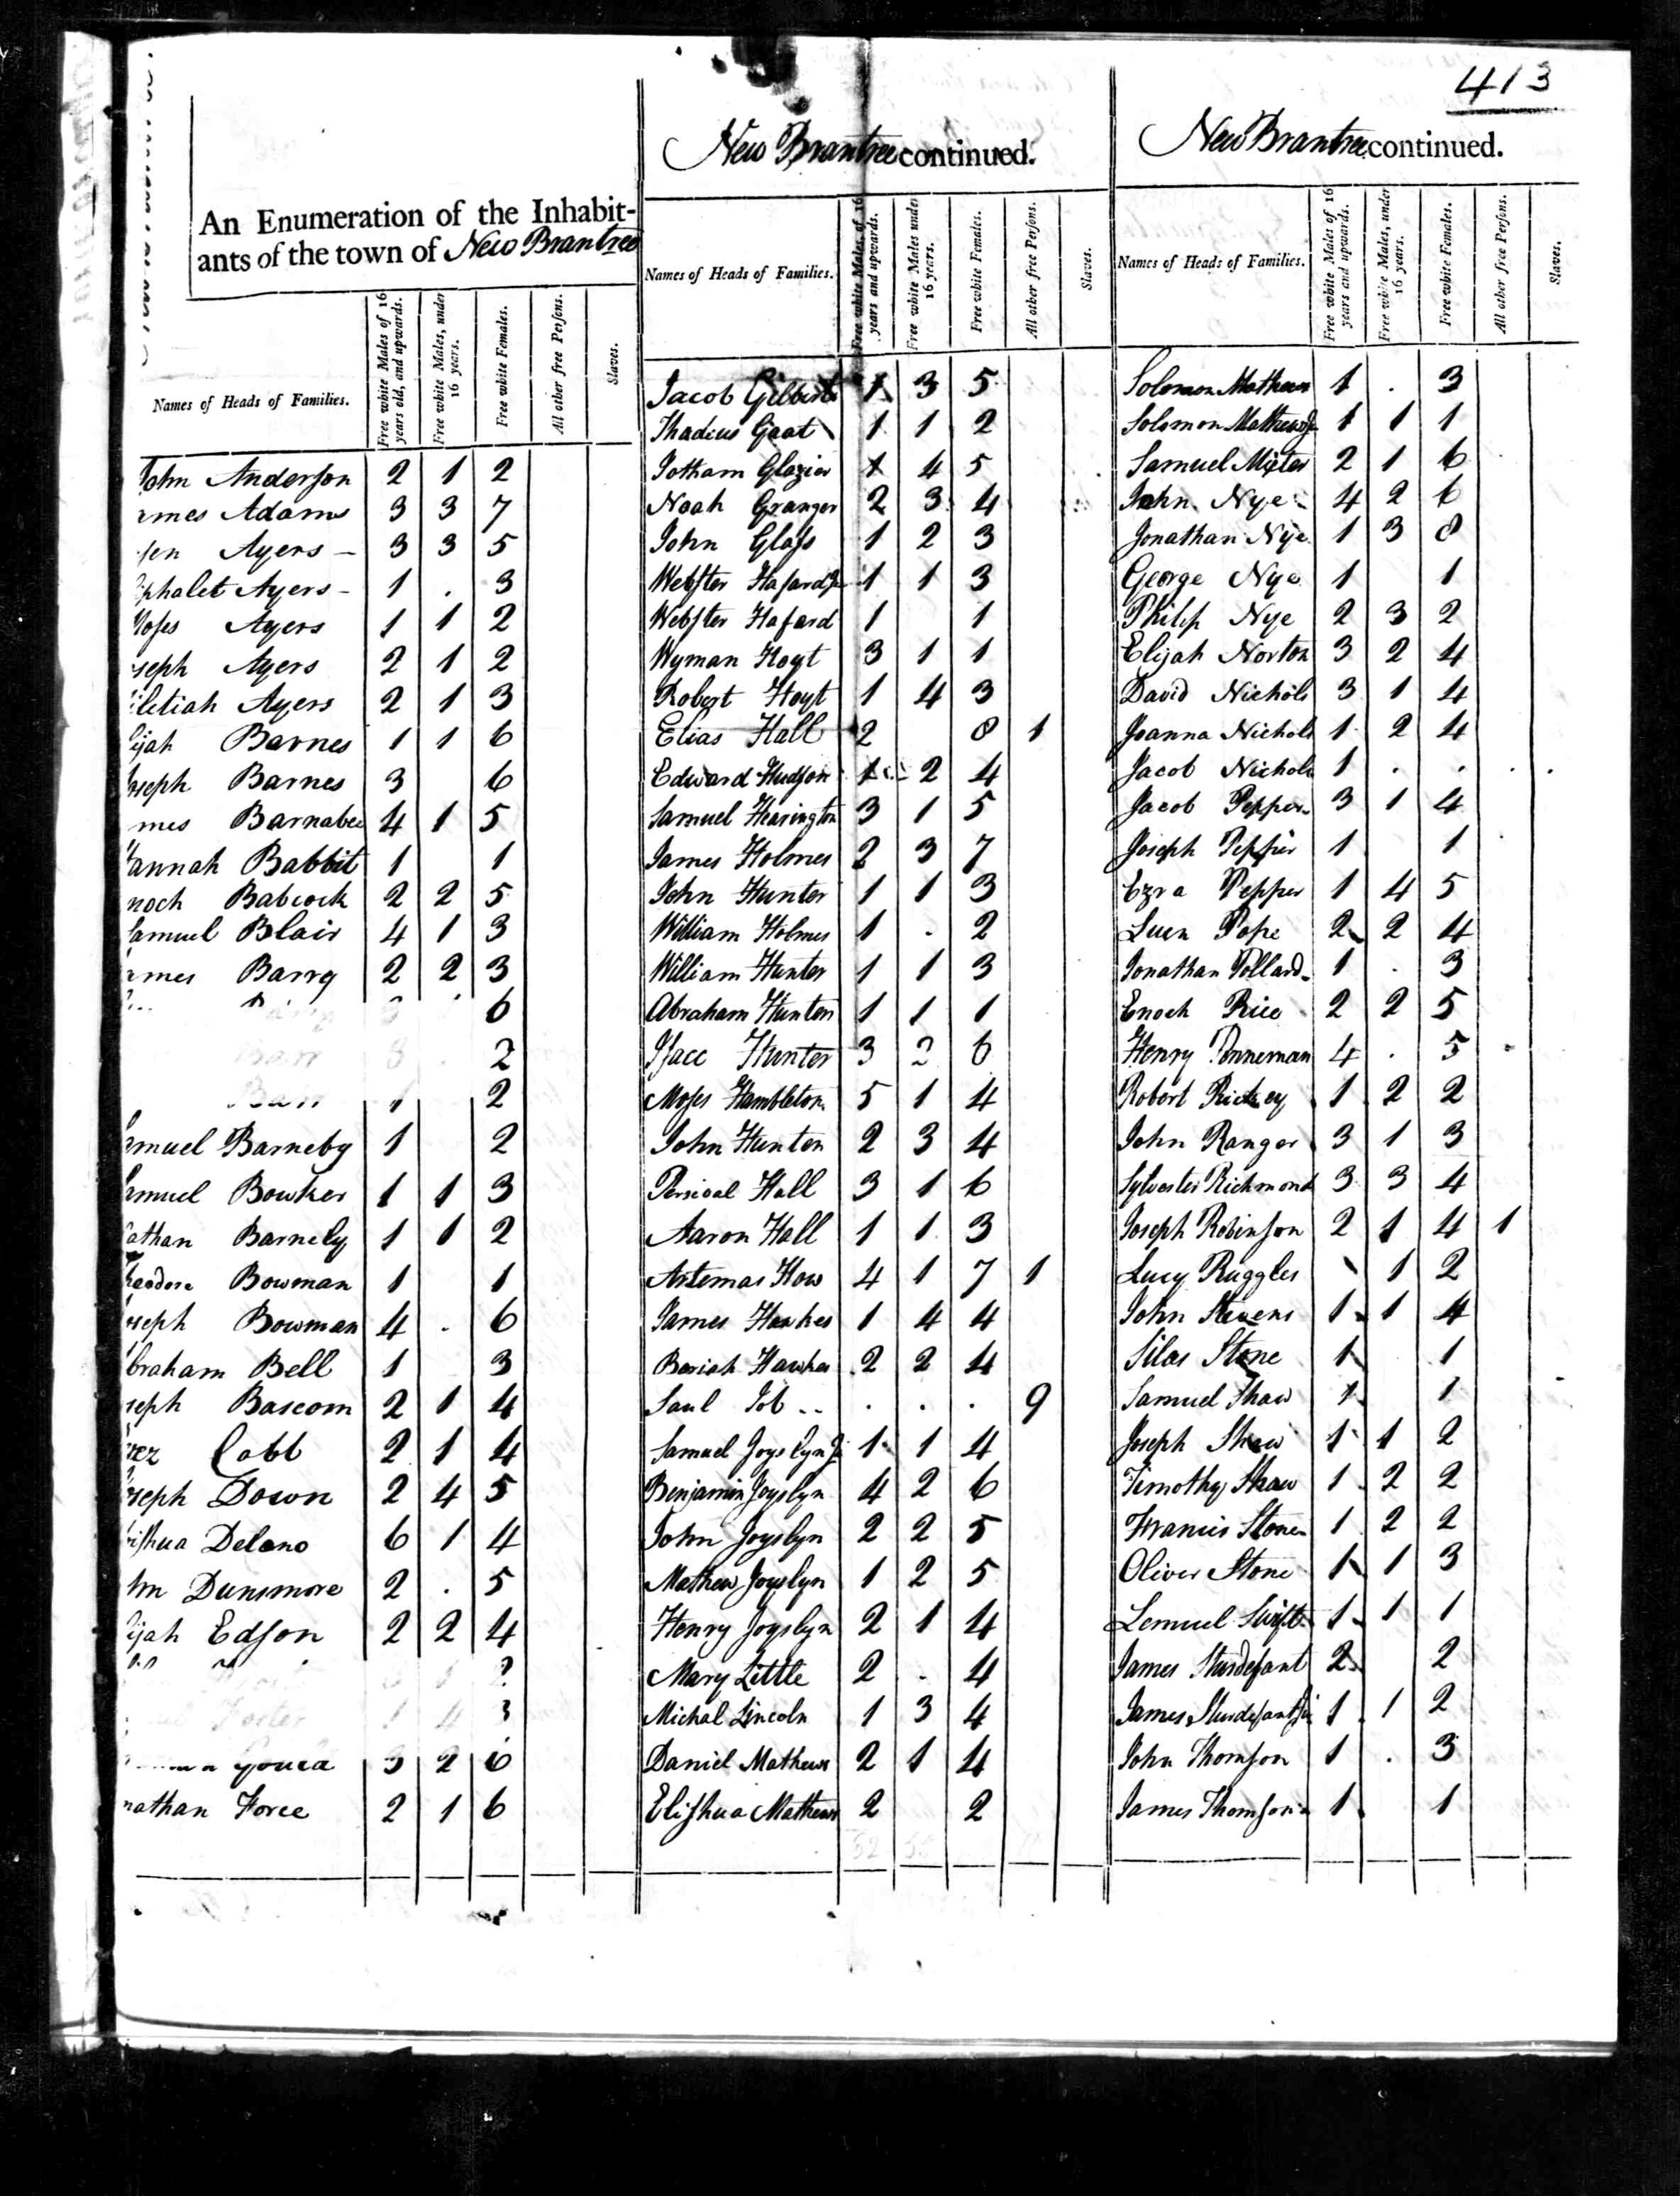 413
An Enumeration of the Inhabit-
ants of the town of New Brantree
Names of Heads of Families.
Free white Males of 16 years old, and upwards.
Free white Males, under 16 years.
Free white Females.
All other free Perſons.
Slaves.
John Anderſon 2 1 2
ames Adams 3 3 7
ſen Ayers - 3 3 5
iphalet Ayers - 1 . 3
Moſes Ayers 1 1 2
oseph Ayers 2 1 2
iletiah Ayers 2 1 3
lijah Barnes 1 1 6
oseph Barnes 3 6
mes Barnabee 4 1 5
Hannah Babbit 1 1
noch Babcock 2 2 5
Samuel Blair 4 1 3
ames Barry 2 2 3
6
Barr 3 . 2
Barr 1 2
Samuel Barneby 1 2
Samuel Bowker 1 1 3
athan Barneby 1 1 2
heodore Bowman 1 1
oseph Bowman 4 . 6
braham Bell 1 3
oseph Bascom 2 1 4
Cobb 2 1 4
oseph Down 2 4 5
iſhua Delano 6 1 4
ohn Dunsmore 2 . 5
lijah Edſon 2 2 4
Foster 1 4 3
3 2 6
nathan Force 2 1 6
New Brantree continued.
Names of Heads of Families.
Free white Males, of 16 years and upwards.
Free white Males under 16 years.
Free white Females.
All other free Perſons.
Slaves.
Jacob Gilbert 1 3 5
Thadeus Gaat 1 1 2
Jotham Glazier 1 4 5
Noah Granger 2 3 4
John Glaſs 1 2 3
Webſter Hafard Jr 1 1 3
Webſter Hafard 1 1
Wyman Hoyt 3 1 1
Robert Hoyt 1 4 3
Elias Hall 2 8 1
Edward Hudſon 1 2 4
Samuel Hearington 3 1 5
James Holmes 2 3 7
John Hunter 1 1 3
William Holmes 1 . 2
William Hunter 1 1 3
Abraham Hunter 1 1 1
Iſacc Hunter 3 2 6
Moſes Hambleton 5 1 4
John Hunter 2 3 4
Percival Hall 3 1 6
Aaron Hall 1 1 3
Artemas How 4 1 7 1
James Hawkes 1 4 4
Beriah Hawkes 2 2 4
Saul Job -- . . . 9
Samuel Joyslyn Jr 1 1 4
Benjamin Joyslyn 4 2 6
John Joyslyn 2 2 5
Mathew Joyslyn 1 2 5
Henry Joyslyn 2 1 4
Mary Little 2 . 4
Michal Lincoln 1 3 4
Daniel Mathews 2 1 4
Eliſhua Mathews 2 2
New Brantree continued.
Names of Heads of Families.
Free white Males of 16 years and upwards.
Free white Males, under 16 years.
Free white Females.
All other free Perſons.
Slaves.
Solomon Mathews 1 . 3
Solomon Mathews Jr 1 1 1
Samuel Mixter 2 1 6
John Nye 4 2 6
Jonathan Nye 1 3 8
George Nye 1 1
Philip Nye 2 3 2
Elijah Norton 3 2 4
David Nichols 3 1 4
Joanna Nichols 1 2 4
Jacob Nichols 1 . . .
Jacob Pepper 3 1 4
Joseph Pepper 1 1
Ezra Pepper 1 4 5
Luen Pope 2 2 4
Jonathan Pollard 1 . 3
Enoch Rice 2 2 5
Henry Penneman 4 . 5
Robert Rickey 1 2 2
John Ranger 3 1 3
Sylvester Richmond 3 3 4
Joseph Robinſon 2 1 4 1
Lucy Ruggles 1 2
John Stevens 1 1 4
Silas Stone 1 1
Samuel Shaw 1 1
Joseph Shaw 1 1 2
Timothy Shaw 1 2 2
Francis Stone 1 2 2
Oliver Stone 1 1 3
Lemuel Swift 1 1 1
James Sturdeſant 2 2
James Sturdeſant Jr 1 1 2
John Thomſon 1 . 3
James Thomſon 1 1